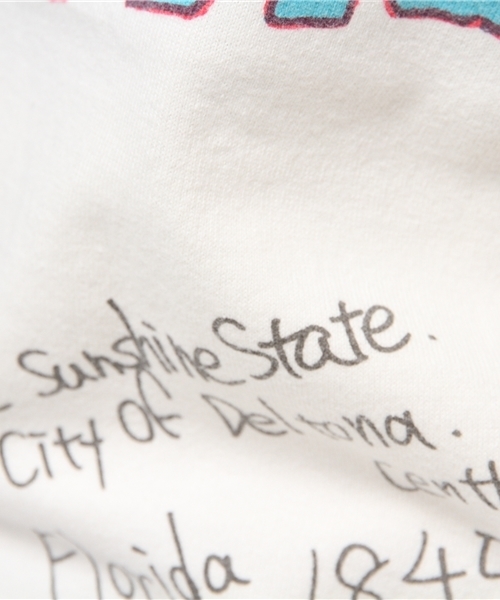 Sunshine State.
City Of Deltona.
Florida